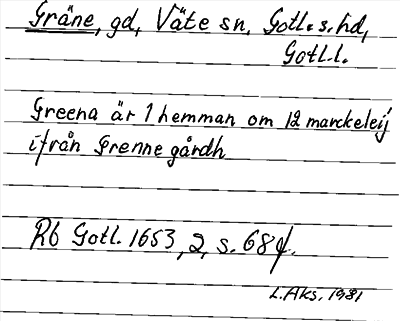 Gräne, gd, Väte sn, Gotl. s. hd,
Gotl. l.
Greena är 1 hemman om 12 marckeleij
ifrån Grenne gårdh
Rb Gotl. 1653, 2, s. 68 f.
L. Aks. 1981